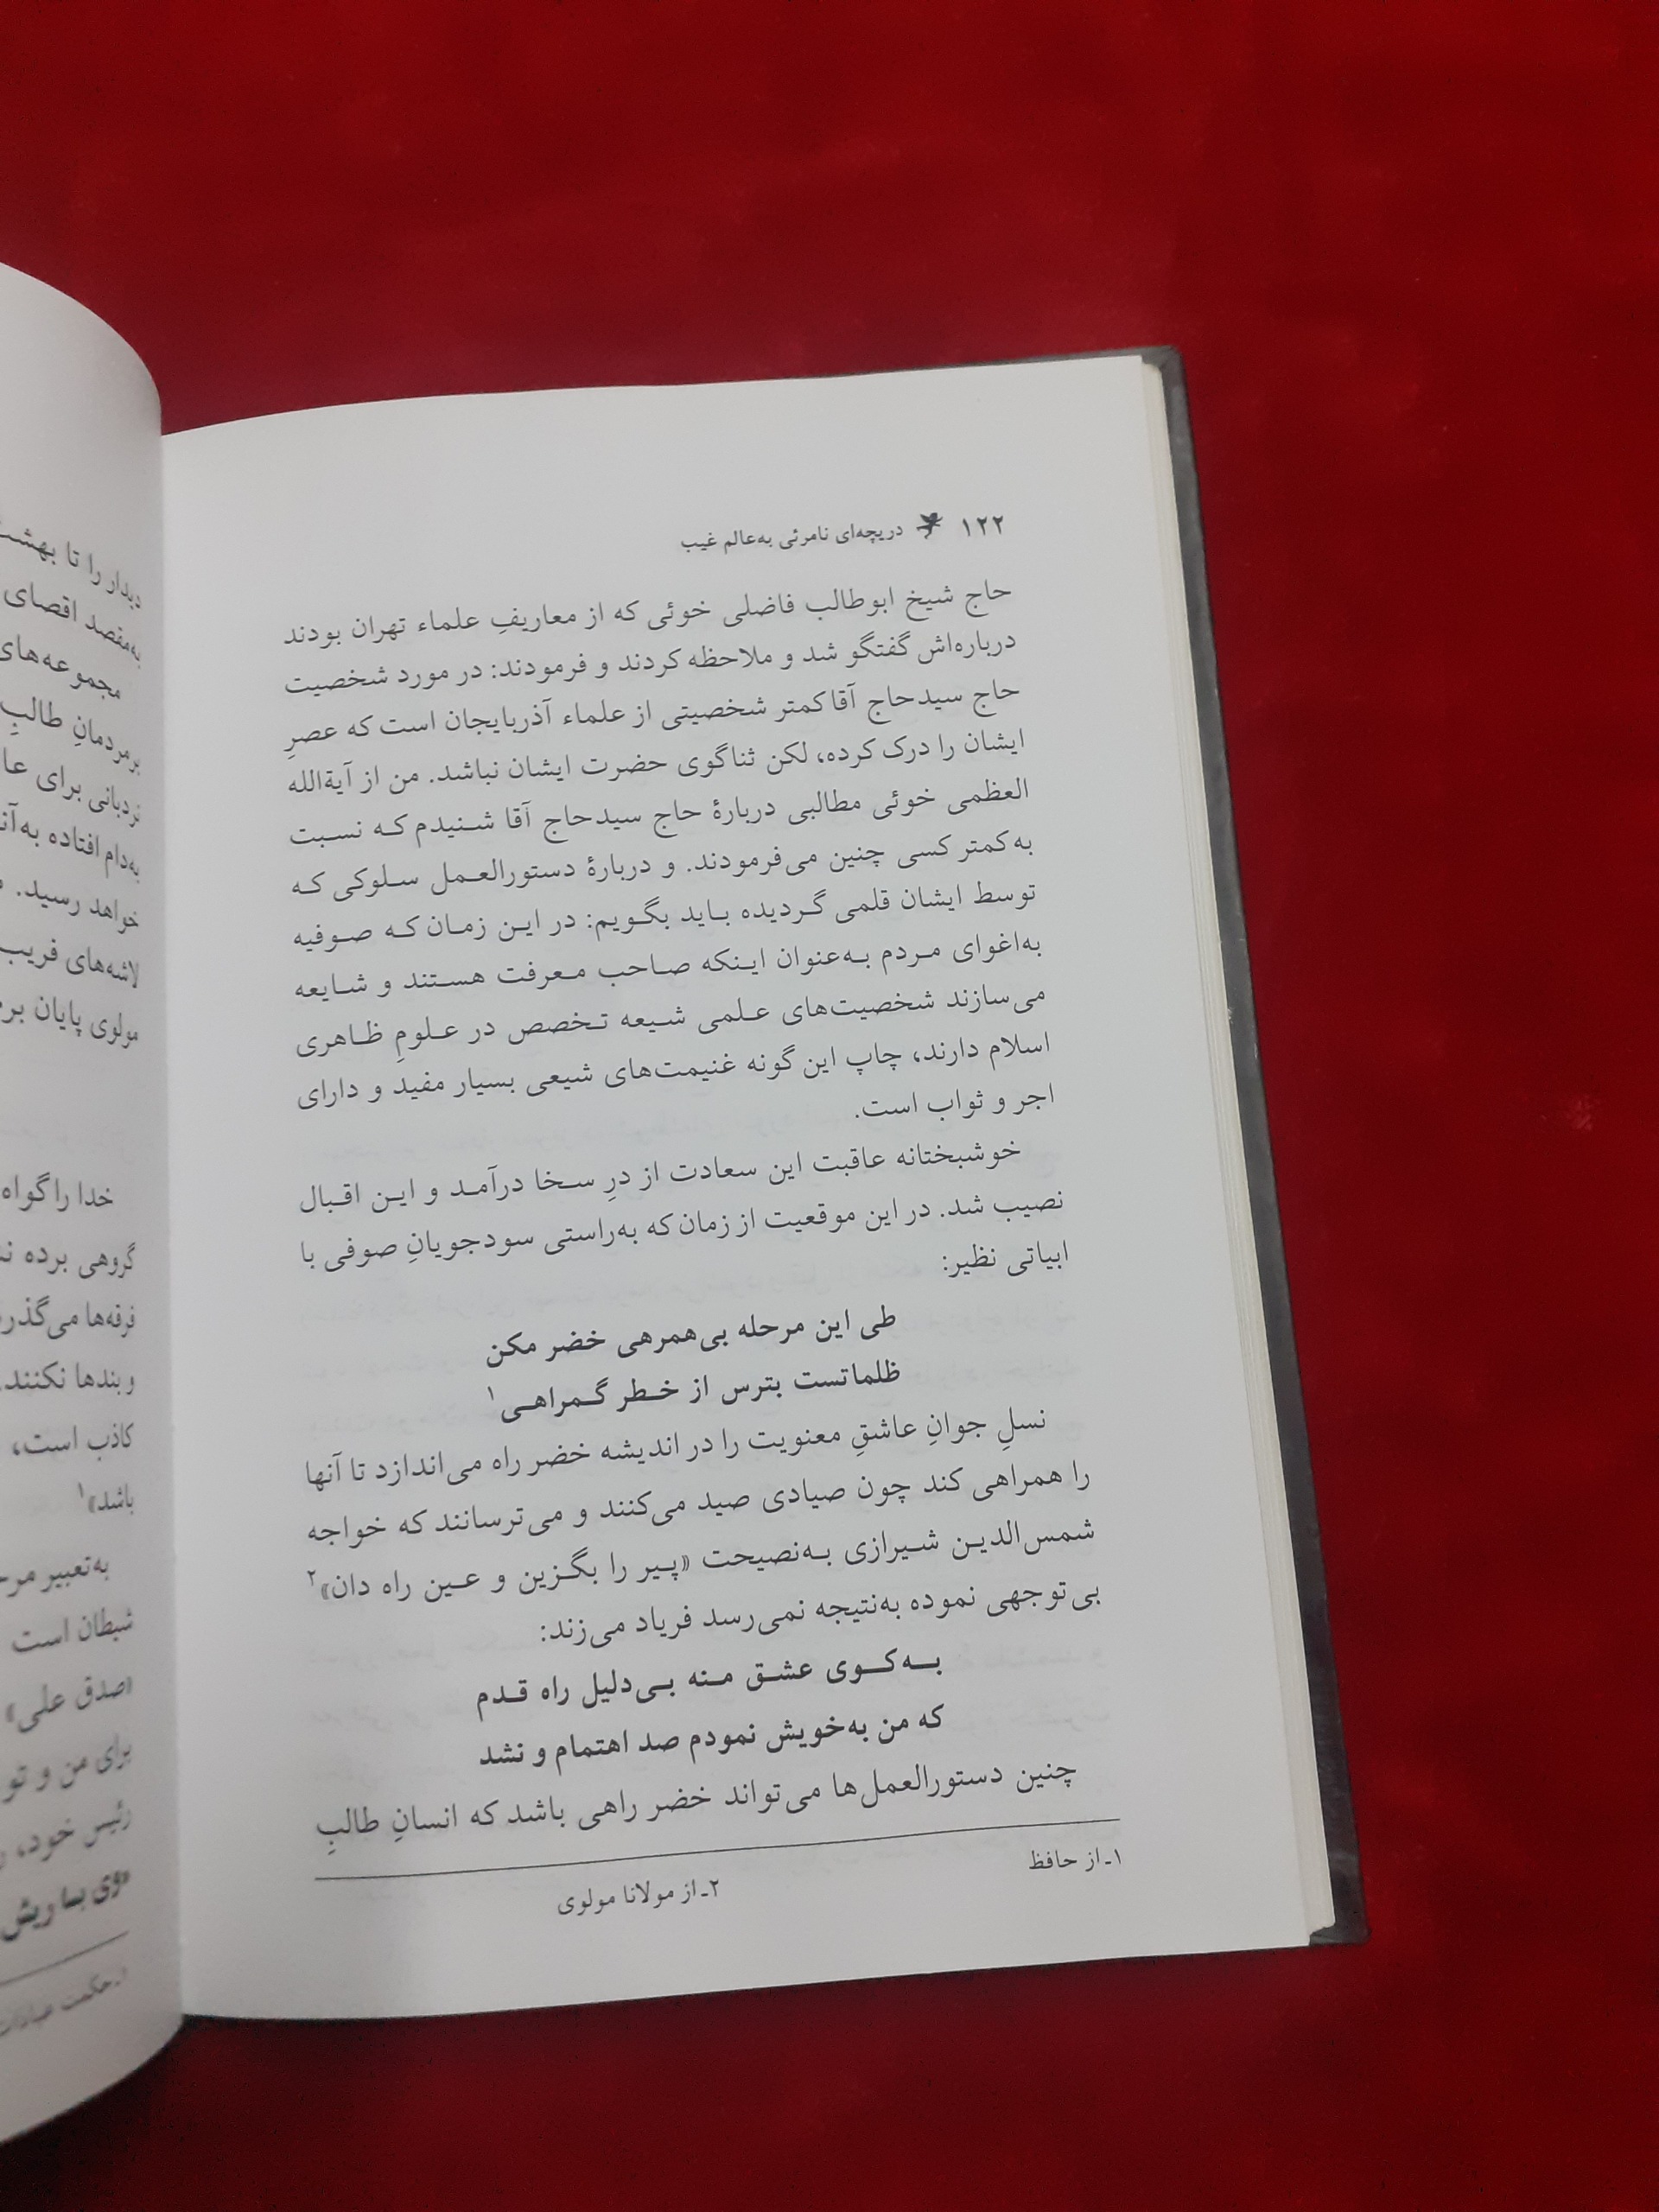 ۱۲۲ دریچه‌ای نامرئی به‌عالم غیب
حاج شیخ ابوطالب فاضلی خوئی که از معاریفِ علماء تهران بودند
درباره‌اش گفتگو شد و ملاحظه کردند و فرمودند: در مورد شخصیت
حاج سیدحاج آقا کمتر شخصیتی از علماء آذربایجان است که عصرِ
ایشان را درک کرده، لکن ثناگوی حضرت ایشان نباشد. من از آیةالله
العظمی خوئی مطالبی دربارهٔ حاج سیدحاج آقا شنیدم که نسبت
به کمتر کسی چنین می‌فرمودند. و دربارهٔ دستورالعمل سلوکی که
توسط ایشان قلمی گردیده باید بگویم: در این زمان که صوفیه
به‌اغوای مردم به‌عنوان اینکه صاحب معرفت هستند و شایعه
می‌سازند شخصیت‌های علمی شیعه تخصص در علومِ ظاهری
اسلام دارند، چاپ این گونه غنیمت‌های شیعی بسیار مفید و دارای
اجر و ثواب است.
خوشبختانه عاقبت این سعادت از درِ سخا درآمد و این اقبال
نصیب شد. در این موقعیت از زمان که به‌راستی سودجویانِ صوفی با
ابیاتی نظیر:
طی این مرحله بی‌همرهی خضر مکن
ظلماتست بترس از خطر گمراهی۱
نسلِ جوانِ عاشقِ معنویت را در اندیشه خضر راه می‌اندازد تا آنها
را همراهی کند چون صیادی صید می‌کنند و می‌ترسانند که خواجه
شمس‌الدین شیرازی به‌نصیحت «پیر را بگزین و عین راه دان»۲
بی‌توجهی نموده به‌نتیجه نمی‌رسد فریاد می‌زند:
به‌کوی عشق منه بی‌دلیل راه قدم
که من به‌خویش نمودم صد اهتمام و نشد
چنین دستورالعمل‌ها می‌تواند خضر راهی باشد که انسانِ طالبِ
۱ـ از حافظ ۲ـ از مولانا مولوی
دیدار را تا
به‌مقصد اقصای
مجموعه‌های
برمردمانِ طالبِ
نردبانی برای
به‌دام افتاده
خواهد رسید.
لاشه‌های فریب
مولوی پایان
خدا را گواه
گروهی برده
فرقه‌ها
و بندها نکنند
کاذب است،
باشد»۱
به‌تعبیر
شیطان است
«صدق علی»
برای من و تو
رئیس خود،
«وی بسا ریش
۱ـ حکمت